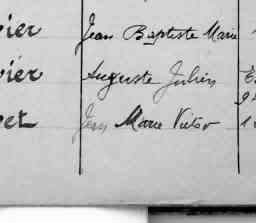 vier Jean Baptiste Marie
vier Auguste Julien
vet Jean Marie Victor